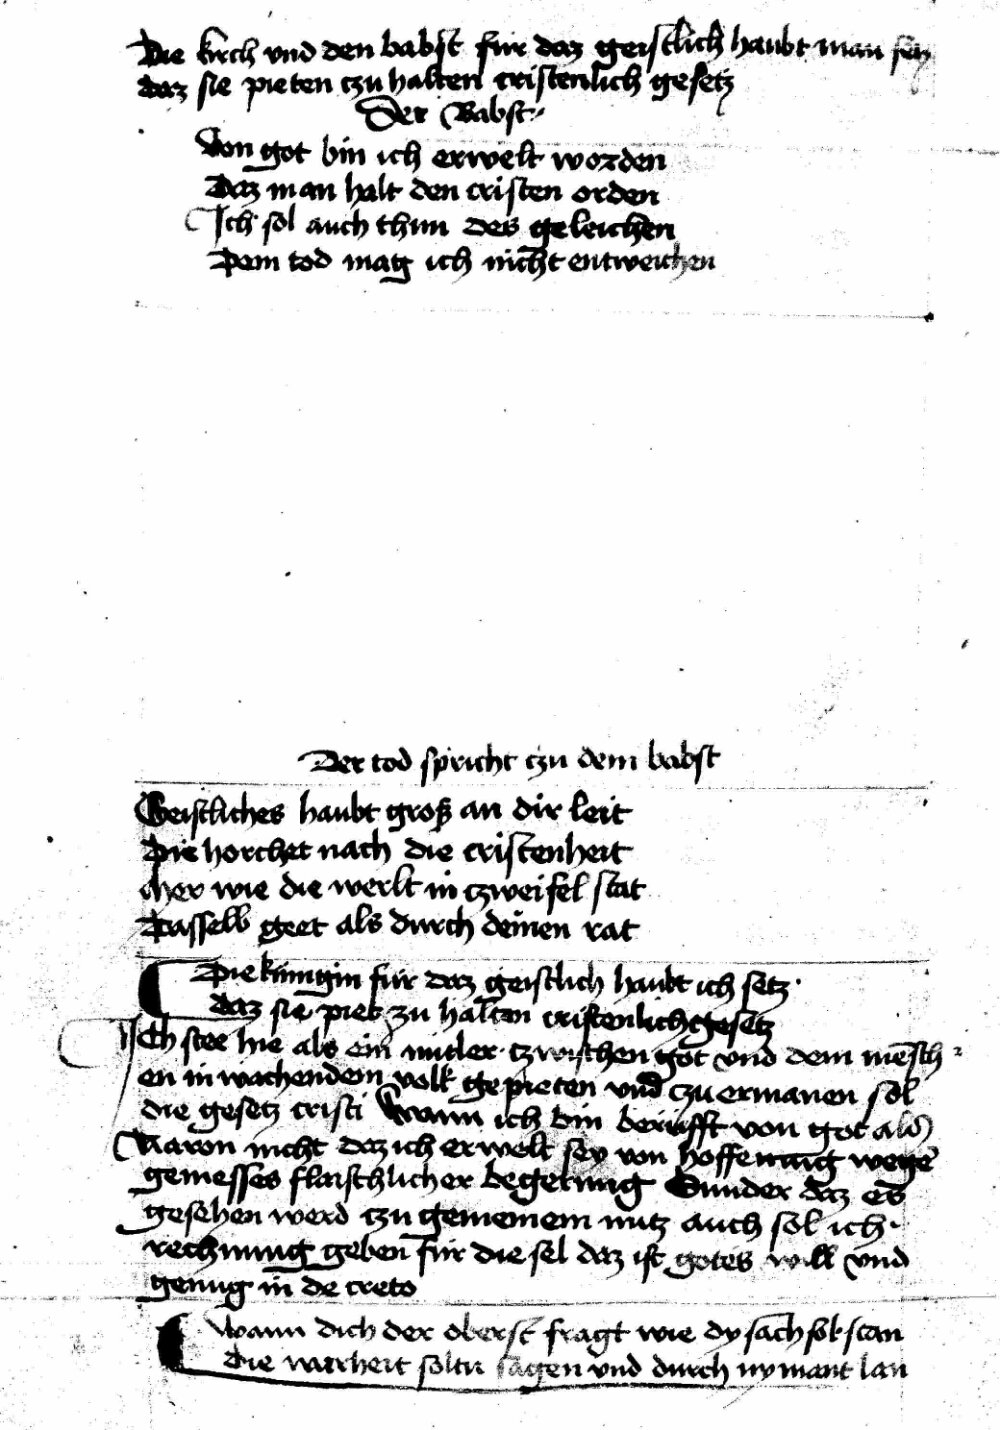 Die kirch vnd den babst fur daz geistlich haubt man setz
daz sie pieten czu halten cristenlich gesetz
Der Babst
Von got bin ich erwelt worden
Daz man halt den cristen orden
Ich sol auch thun des geleichen
Dem tod mag ich nicht entweichen
Der tod spricht czu dem babst
Geistliches haubt groß an dir leit
Die horchet nach die cristenheit
wie die werlt in czweifel stat
Dasselb geet als durch deinen rat
Die kunigin fur daz geistlich haubt ich setz
daz sie piet zu halten cristenlich gesetz
Ich stee hie als ein mitler czwischen got vnd dem mensch
en in wachendem volk gepieten vnd czu ermanen sol
die gesetz cristi Wann ich bin berufft von got als
Aaron nicht daz ich erwelt sey von hoffenung wege
geniesses flaischlicher begerung Sunder daz es
gesehen werd czu gemeinem nutz auch sol ich
rechnung geben fur die sel daz ist gotes will vnd
genug in de creto
Wann dich der oberst fragt wie dy sach sol stan
die warheit soltu sagen vnd durch nymant lan